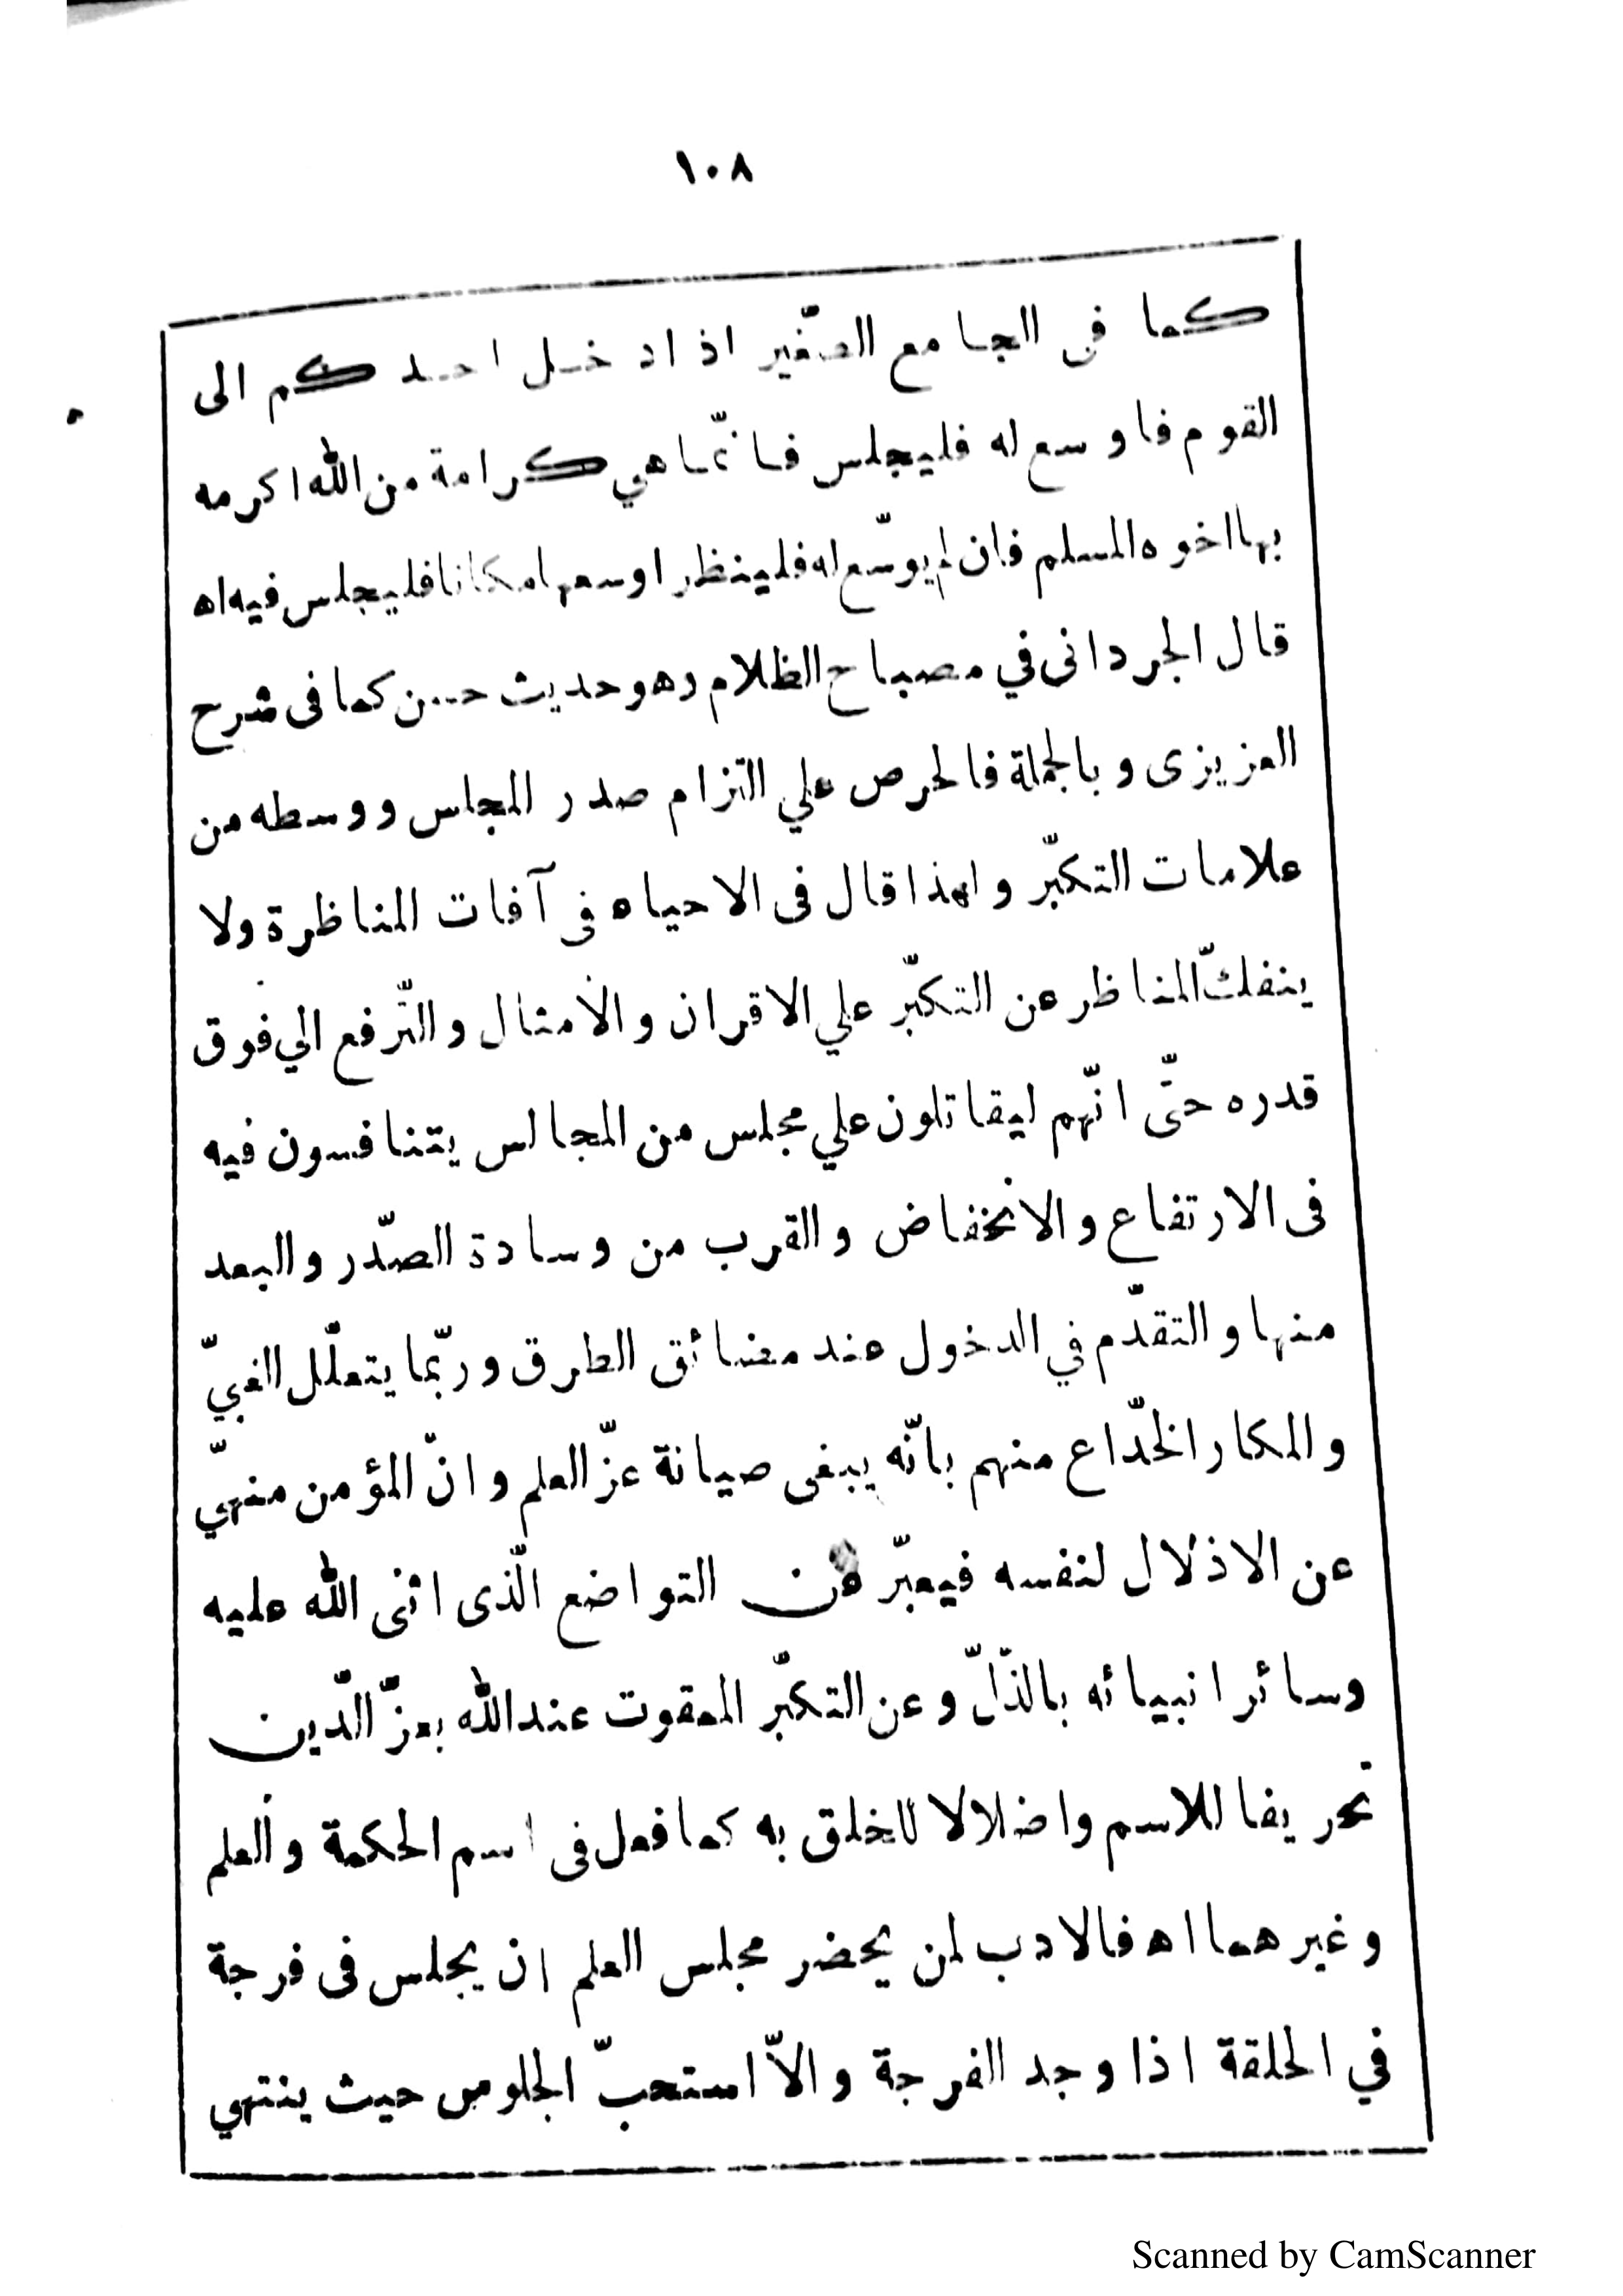 ١٠٨
كما فى الجامع الصّغير اذا دخل احدكم الى
القوم فاوسع له فليجلس فانّما هي كرامة من الله اكرمه
بها اخوه المسلم فان لم يوسّع له فلينظر اوسعها مكانا فليجلس فيه اه
قال الجردانى في مصباح الظلام وهو حديث حسن كما فى شرح
العزيزى وبالجملة فالحرص علي التزام صدر المجلس ووسطه من
علامات التكبّر ولهذا قال فى الاحياء فى آفات المناظرة ولا
ينفكّ المناظر عن التكبّر علي الاقران والأمثال والتّرفع الي فوق
قدره حتّى انّهم ليقاتلون علي مجلس من المجالس يتنافسون فيه
فى الارتفاع والانخفاض والقرب من وسادة الصّدر والبعد
منها والتقدّم في الدخول عند مضائق الطرق وربّما يتعلّل الغبيّ
والمكار الخدّاع منهم بانّه يبغى صيانة عزّ العلم وانّ المؤمن منهيّ
عن الاذلال لنفسه فيعبّر عن التواضع الّذى اثنى الله عليه
وسائر انبيائه بالذّلّ وعن التكبّر الممقوت عند الله بعزّ الّدين
تحريفا للاسم واضلالا للخلق به كما فعل فى اسم الحكمة والعلم
وغيرهما اه فالادب لمن يحضر مجلس العلم ان يجلس فى فرجة
في الحلقة اذا وجد الفرجة والاّ استحبّ الجلوس حيث ينتهي
Scanned by CamScanner